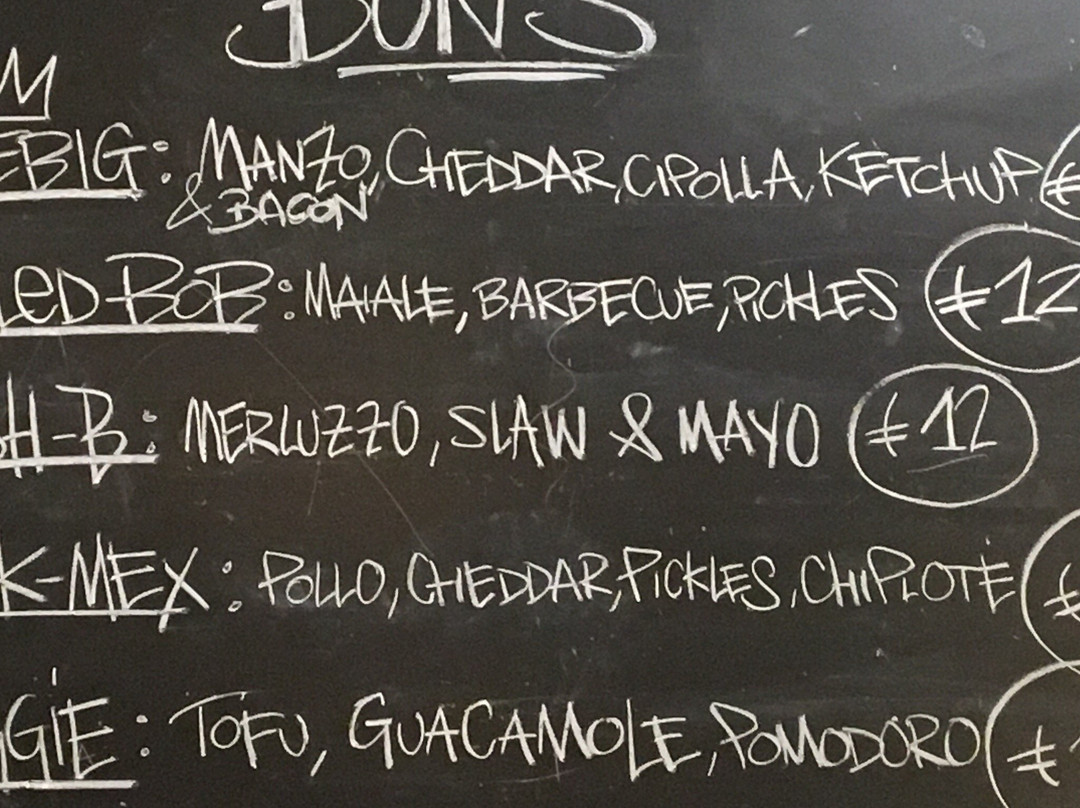 BUNS
M
EBIG: MANZO, CHEDDAR, CIPOLLA, KETCHUP €
& BACON
LED BOB: MAIALE, BARBECUE, PICKLES €12
H-B: MERLUZZO, SLAW & MAYO €12
K-MEX: POLLO, CHEDDAR, PICKLES, CHIPLOTE €
GIE: TOFU, GUACAMOLE, POMODORO €